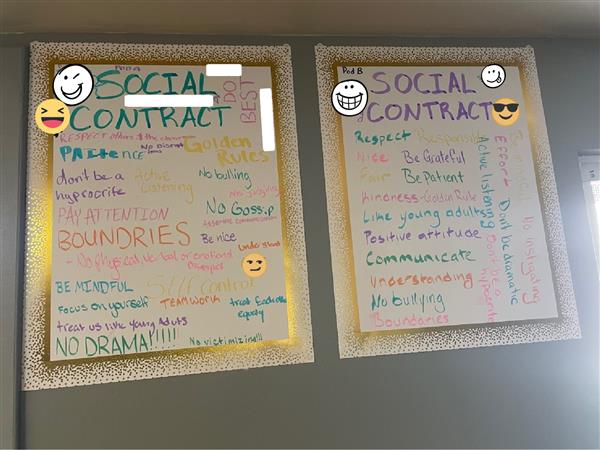 SOCIAL
CONTRACT
DO
BEST
RESPECT others & the
PAIIence
No Disrupt
Golden
Rules
don't be a
hyprocrite
Active
Listening
No bulling
No judging
PAY ATTENTION
No Gossip
Assertive communication
BOUNDRIES
Be nice
understand
- No physical, verbal or emotional
Disrespect
BE MINDFUL
Self control
Focus on yourself
TEAMWORK
treat Each other
equally
treat us like young Adults
NO DRAMA!!!!!
No victimizing!!!
Pod B
SOCIAL
CONTRACT
Respect
Responsibility
Nice
Be Grateful
Fair
Be Patient
Kindness-Golden Rule
Like young adults
Positive attitude
Communicate
Understanding
No bullying
Boundaries
Active listening
Don't be a hypocrite
Effort
Don't be dramatic
No instigating